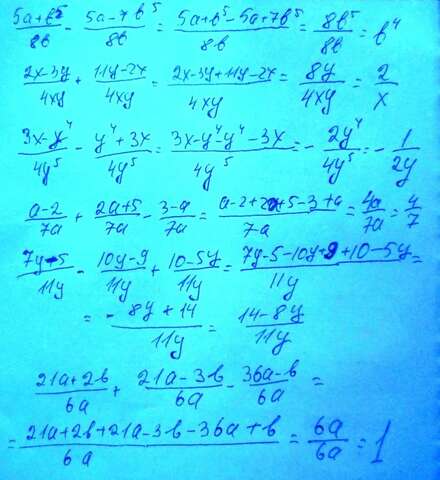 (5a+b⁵)/8b - (5a-7b⁵)/8b = (5a+b⁵-5a+7b⁵)/8b = 8b⁵/8b = b⁴
(2x-3y)/4xy + (11y-2x)/4xy = (2x-3y+11y-2x)/4xy = 8y/4xy = 2/x
(3x-y⁴)/4y⁵ - (y⁴+3x)/4y⁵ = (3x-y⁴-y⁴-3x)/4y⁵ = - 2y⁴/4y⁵ = - 1/2y
(a-2)/7a + (2a+5)/7a - (3-a)/7a = (a-2+2a+5-3+a)/7a = 4a/7a = 4/7
(7y-5)/11y - (10y-9)/11y + (10-5y)/11y = (7y-5-10y+9+10-5y)/11y =
= (-8y+14)/11y = (14-8y)/11y
(21a+2b)/6a + (21a-3b)/6a - (36a-b)/6a =
= (21a+2b+21a-3b-36a+b)/6a = 6a/6a = 1